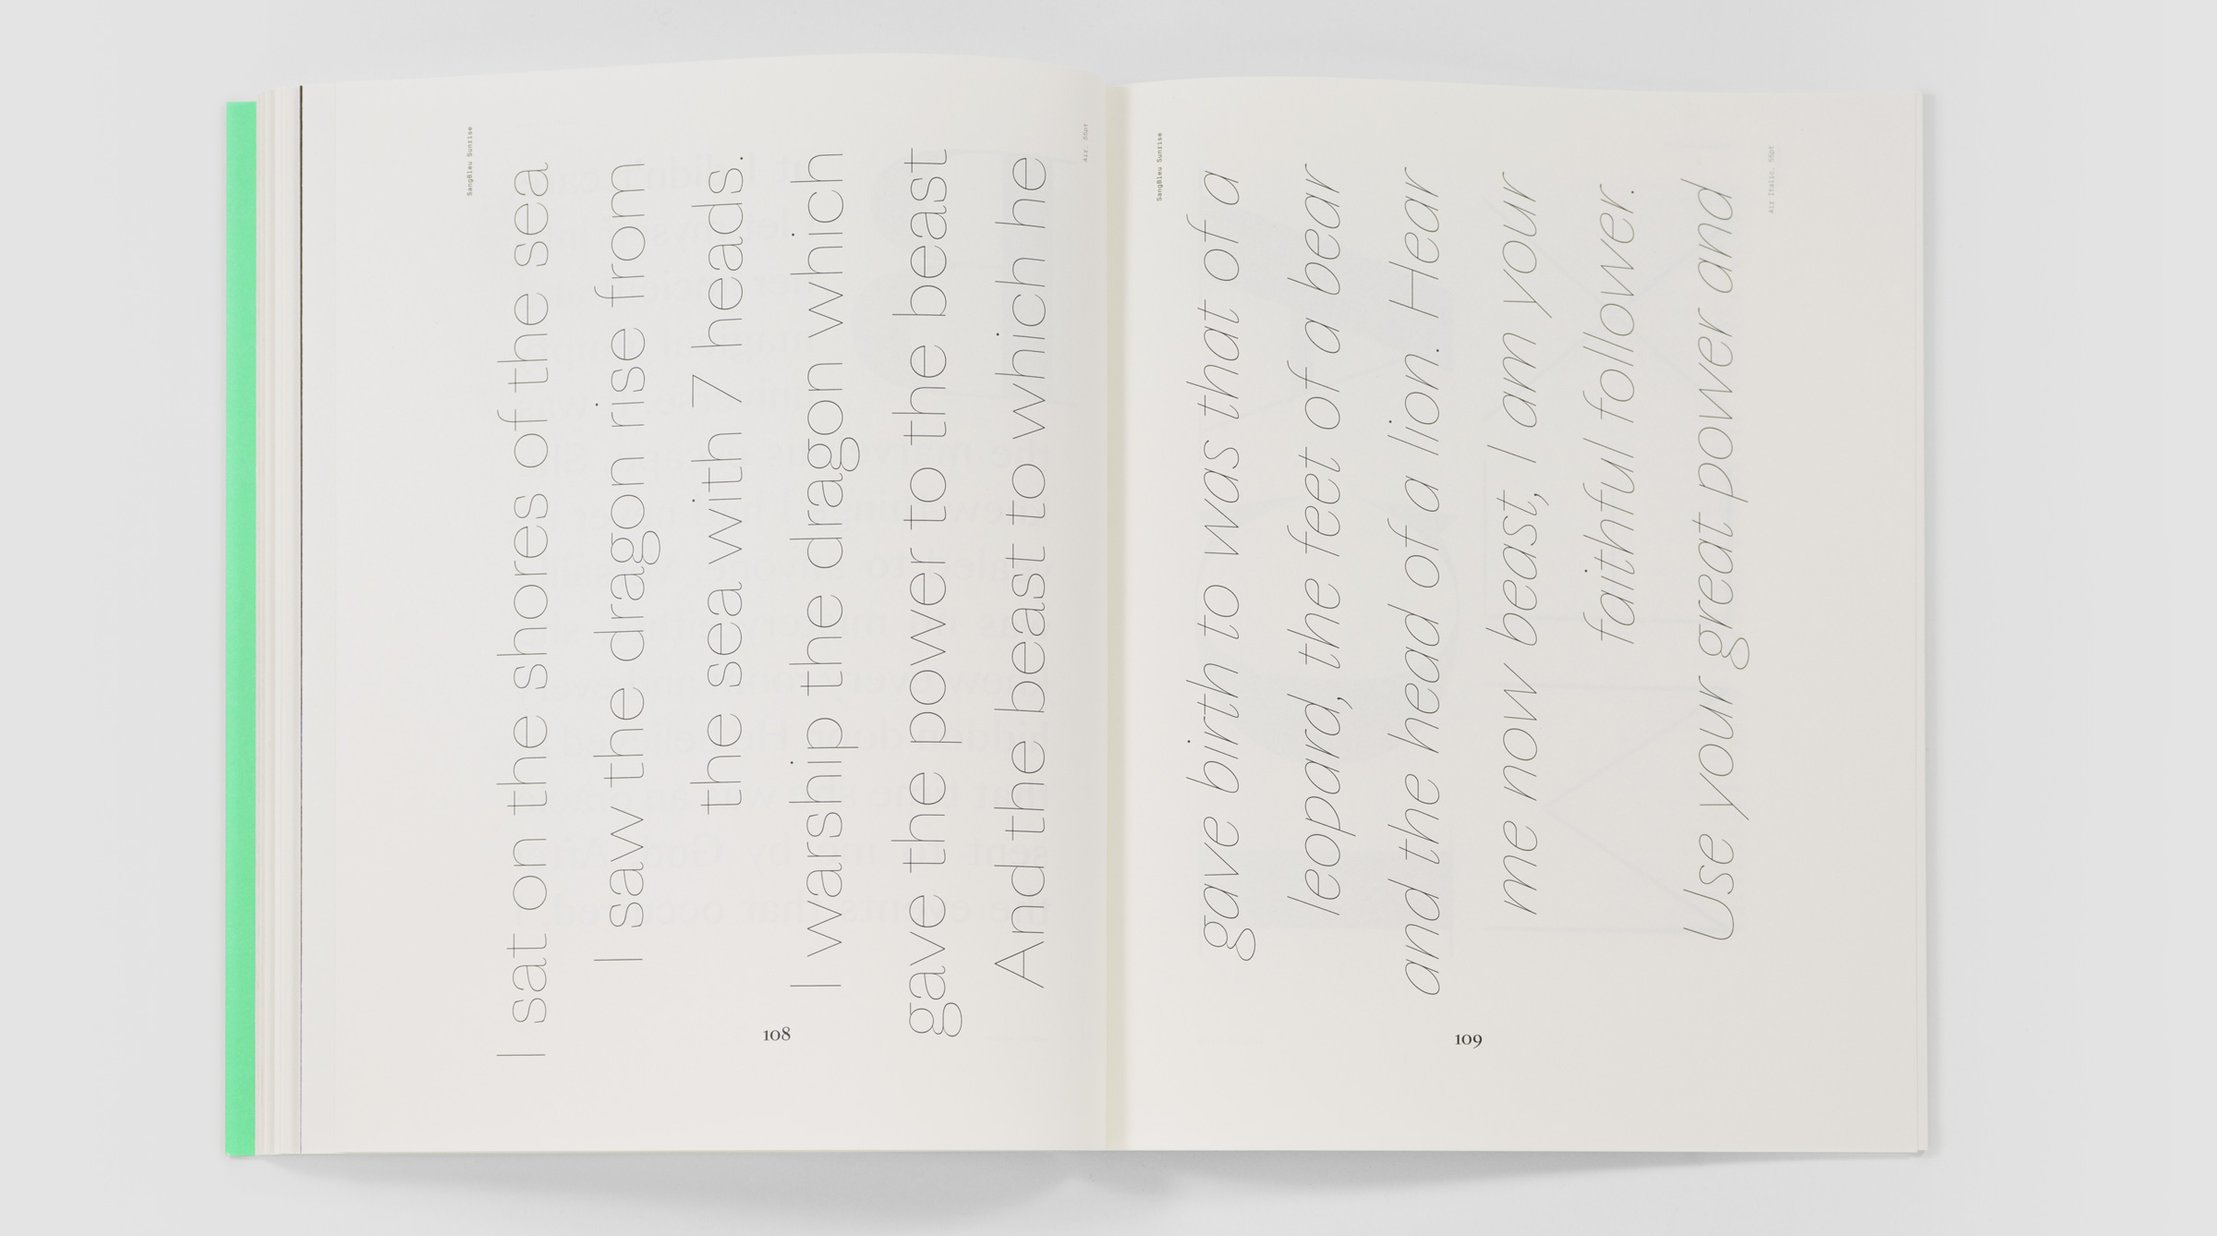 SangBleu Sunrise
I sat on the shores of the sea
I saw the dragon rise from
the sea with 7 heads.
I warship the dragon which
gave the power to the beast
And the beast to which he
Air, 55pt
108
SangBleu Sunrise
gave birth to was that of a
leopard, the feet of a bear
and the head of a lion. Hear
me now beast, I am your
faithful follower.
Use your great power and
Air Italic, 55pt
109